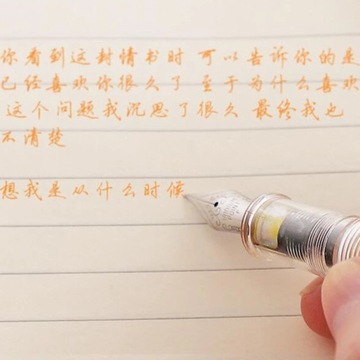 你看到这封情书时 可以告诉你的是
已经喜欢你很久了 至于为什么喜欢
这个问题我沉思了很久 最终我也
不清楚
想我是从什么时候